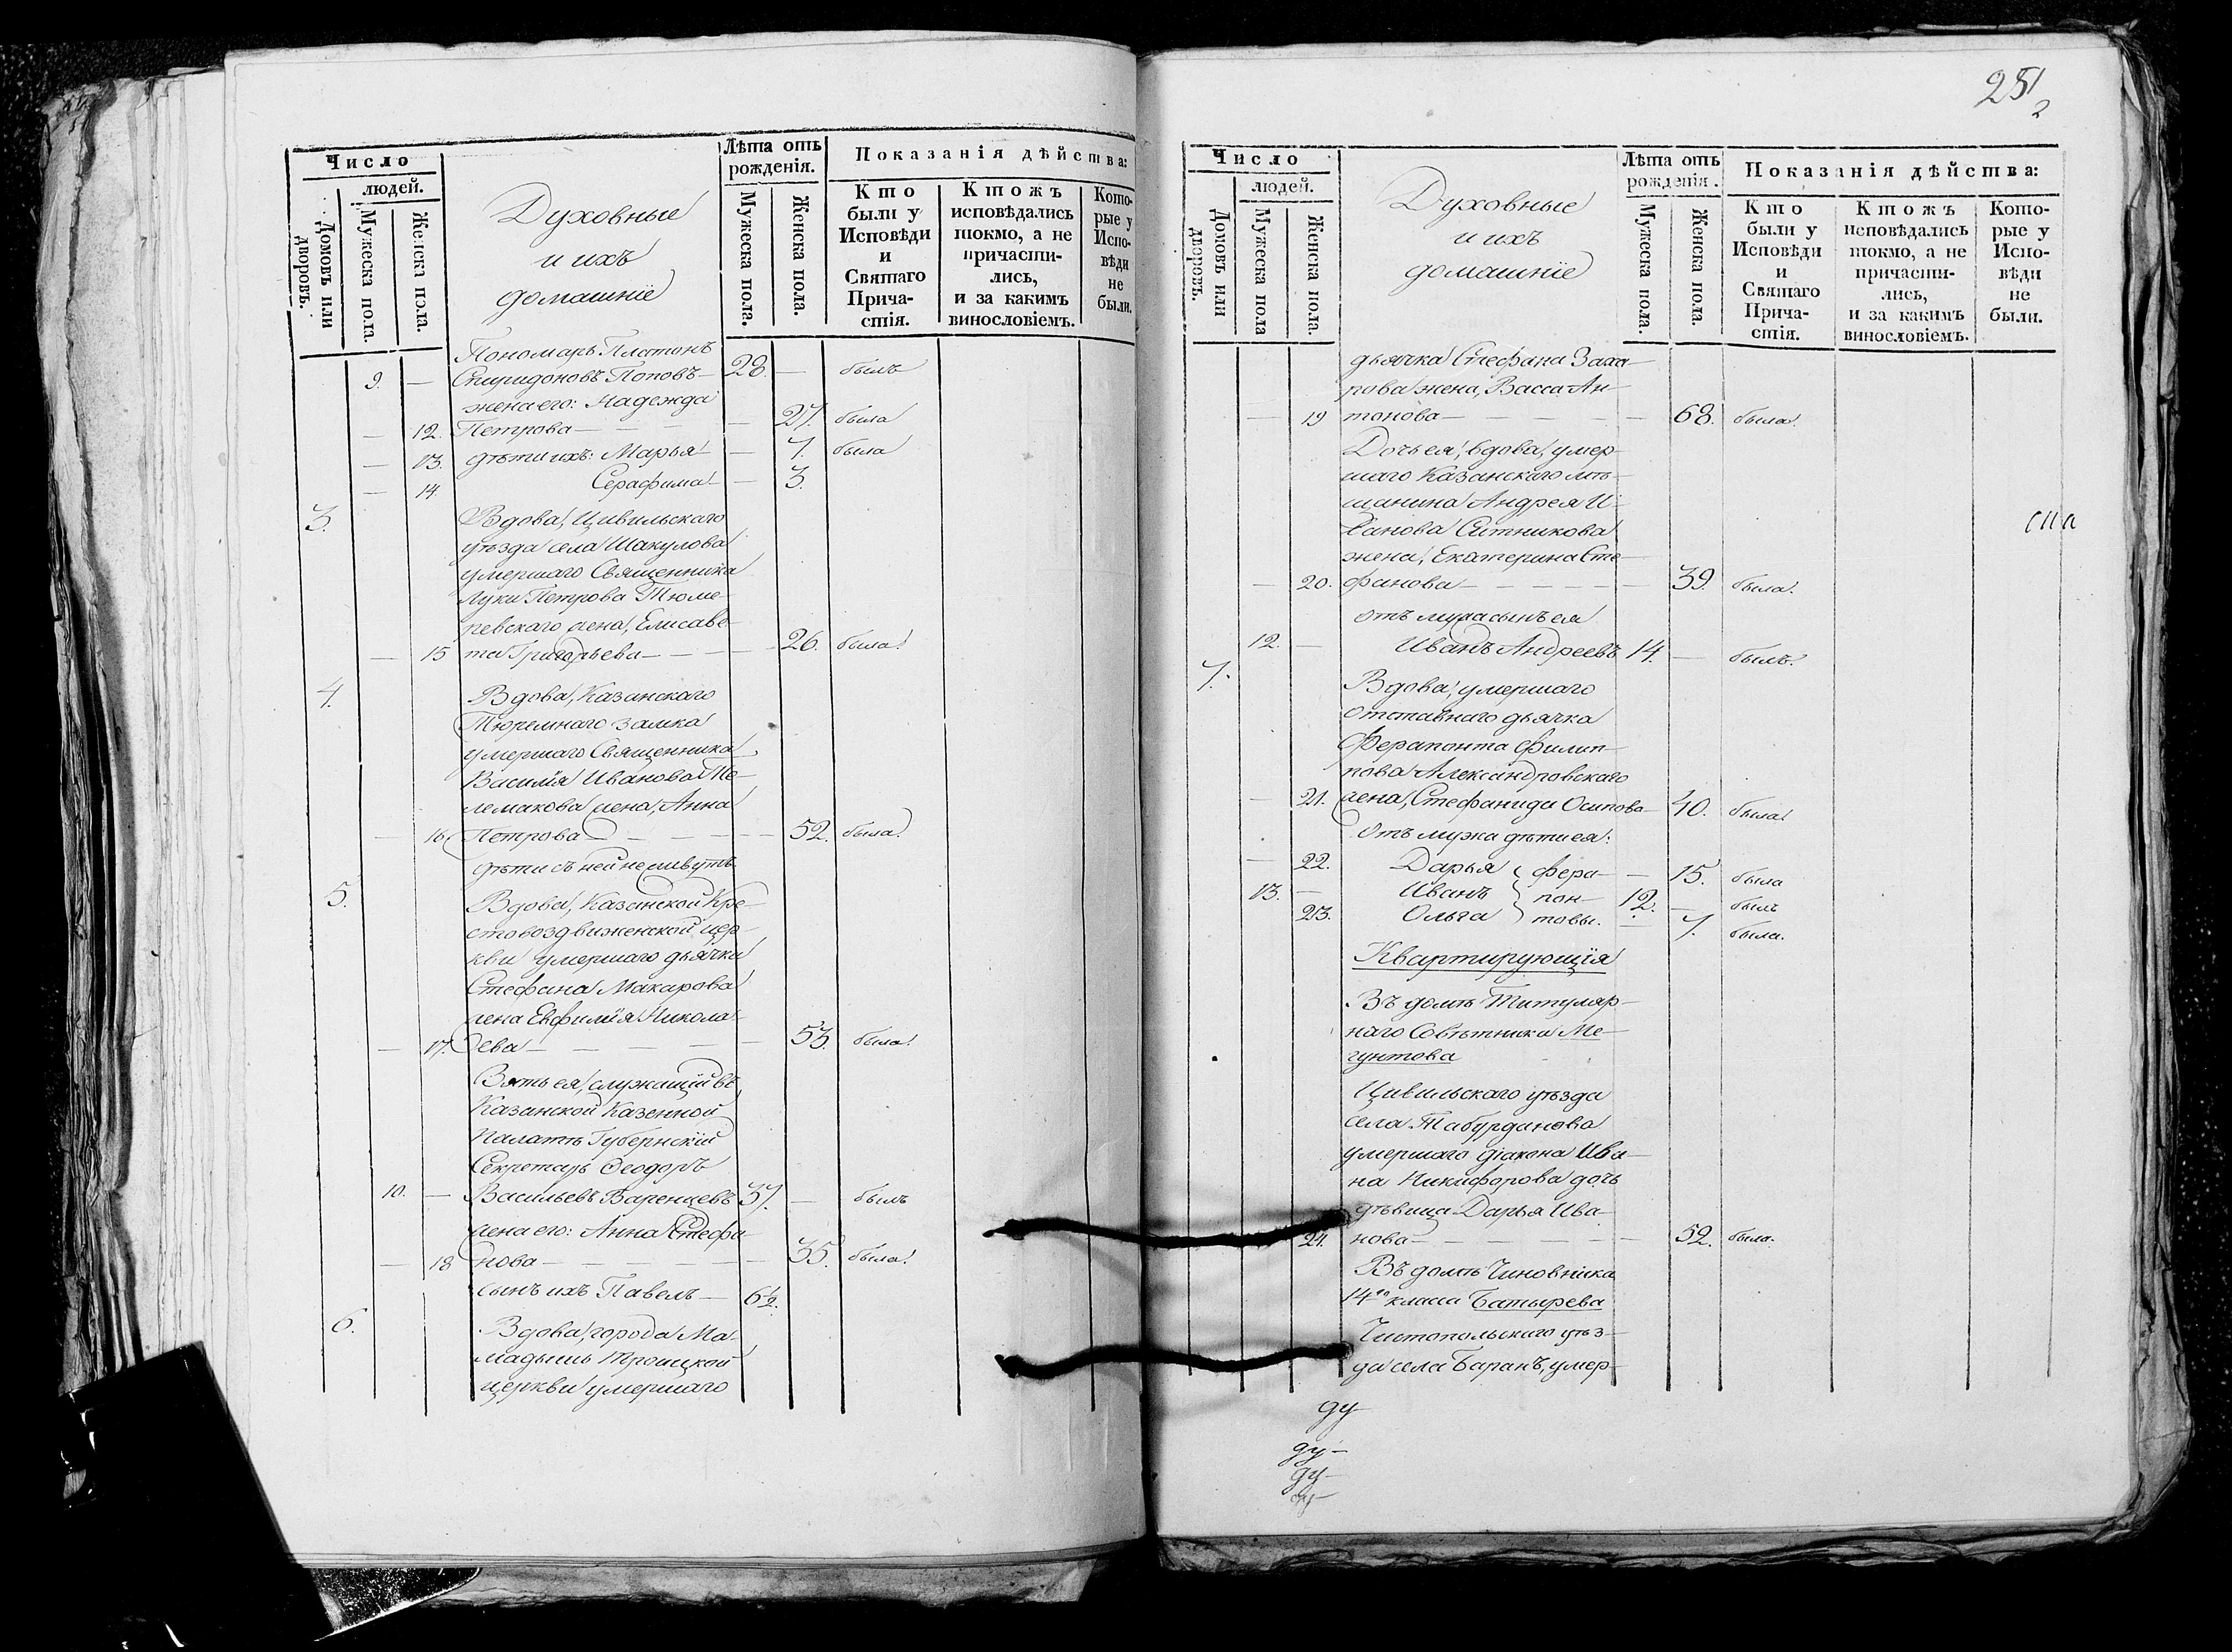 Число
людей.
Домовъ или дворовъ.
Мужеска пола.
Женска пола.
Духовные
и ихъ
домашніе
Лѣта отъ рожденія.
Мужеска пола.
Женска пола.
Показанія дѣйства:
Кто были у Исповѣди и Святаго Прича-стія.
Ктожъ исповѣдались токмо, а не причасти-лись, и за какимъ винословіемъ.
Кото-рые у Испо-вѣди не были.
Пономарь Платонъ
9. — Спиридоновъ Поповъ — 28. — былъ
жена его: Надежда
— 12. Петрова — — 27. была
— 13. дѣти ихъ: Марья — — 7. была
— 14. Серафима — — 3.
3. Вдова, Цивильскаго
уѣзда села Шакулова
умершаго Священника
Луки Петрова Тюме-
ревскаго жена, Елисаве-
— 15 та Григорьева — — 26. была.
4. Вдова, Казанскаго
Тюремнаго замка
умершаго Священника
Василія Иванова Те-
лемакова жена, Анна
— 16 Петрова — — 52. была.
дѣти съ ней не живутъ
5. Вдова, Казанской Кре-
стовоздвиженской цер-
кви умершаго дьячка
Стефана Макарова
жена Евфимія Никола-
— 17. ева — — 53. была.
Зять ея, служащій въ
Казанской Казенной
Палатѣ Губернскій
Секретарь Ѳеодоръ
10. — Васильевъ Варенцевъ 37. — былъ
жена его: Анна Стефа-
— 18 нова — — 35. была.
сынъ ихъ Павелъ — 6½.
6. Вдова, города Ма-
мадышъ Троицкой
церкви умершаго
251
2
Число
людей.
Домовъ или дворовъ.
Мужеска пола
Женска пола.
Духовные
и ихъ
домашніе
Лѣта отъ рожденія.
Мужеска пола.
Женска пола.
Показанія дѣйства:
Кто были у Исповѣди и Святаго Прича-стія.
Ктожъ исповѣдались токмо, а не причасти-лись, и за какимъ винословіемъ.
Кото-рые у Испо-вѣди не были.
дьячка Стефана Заха-
рова жена, Васса Ан-
— 19 тонова — — 68. была.
Дочь ея, вдова, умер-
шаго Казанскаго мѣ-
щанина Андрея И-
ванова Ситникова
жена, Екатерина Сте-
— 20. фанова — — 39. была.
отъ мужа сынъ ея
12. — Иванъ Андреевъ 14. — былъ.
7. Вдова, умершаго
отставнаго дьячка
Ферапонта Филип-
пова Александровскаго
— 21. жена, Стефанида Осипова — 40. была.
Отъ мужа дѣти ея:
— 22. Дарья Фера- — 15. была
13. — Иванъ пон- 12. — былъ
23. Ольга товы. — 7. была.
Квартирующія
Въ домѣ Титуляр-
наго Совѣтника Ме-
гунтова
Цивильскаго уѣзда
села Табурданова
умершаго діакона Ива-
на Никифорова дочь
дѣвица Дарья Ива-
24. нова — — 52. была.
Въ домѣ Чиновника
14го класса Батырева
Чистопольскаго уѣз-
да села Баранъ, умер-
ду
ду-
ду-